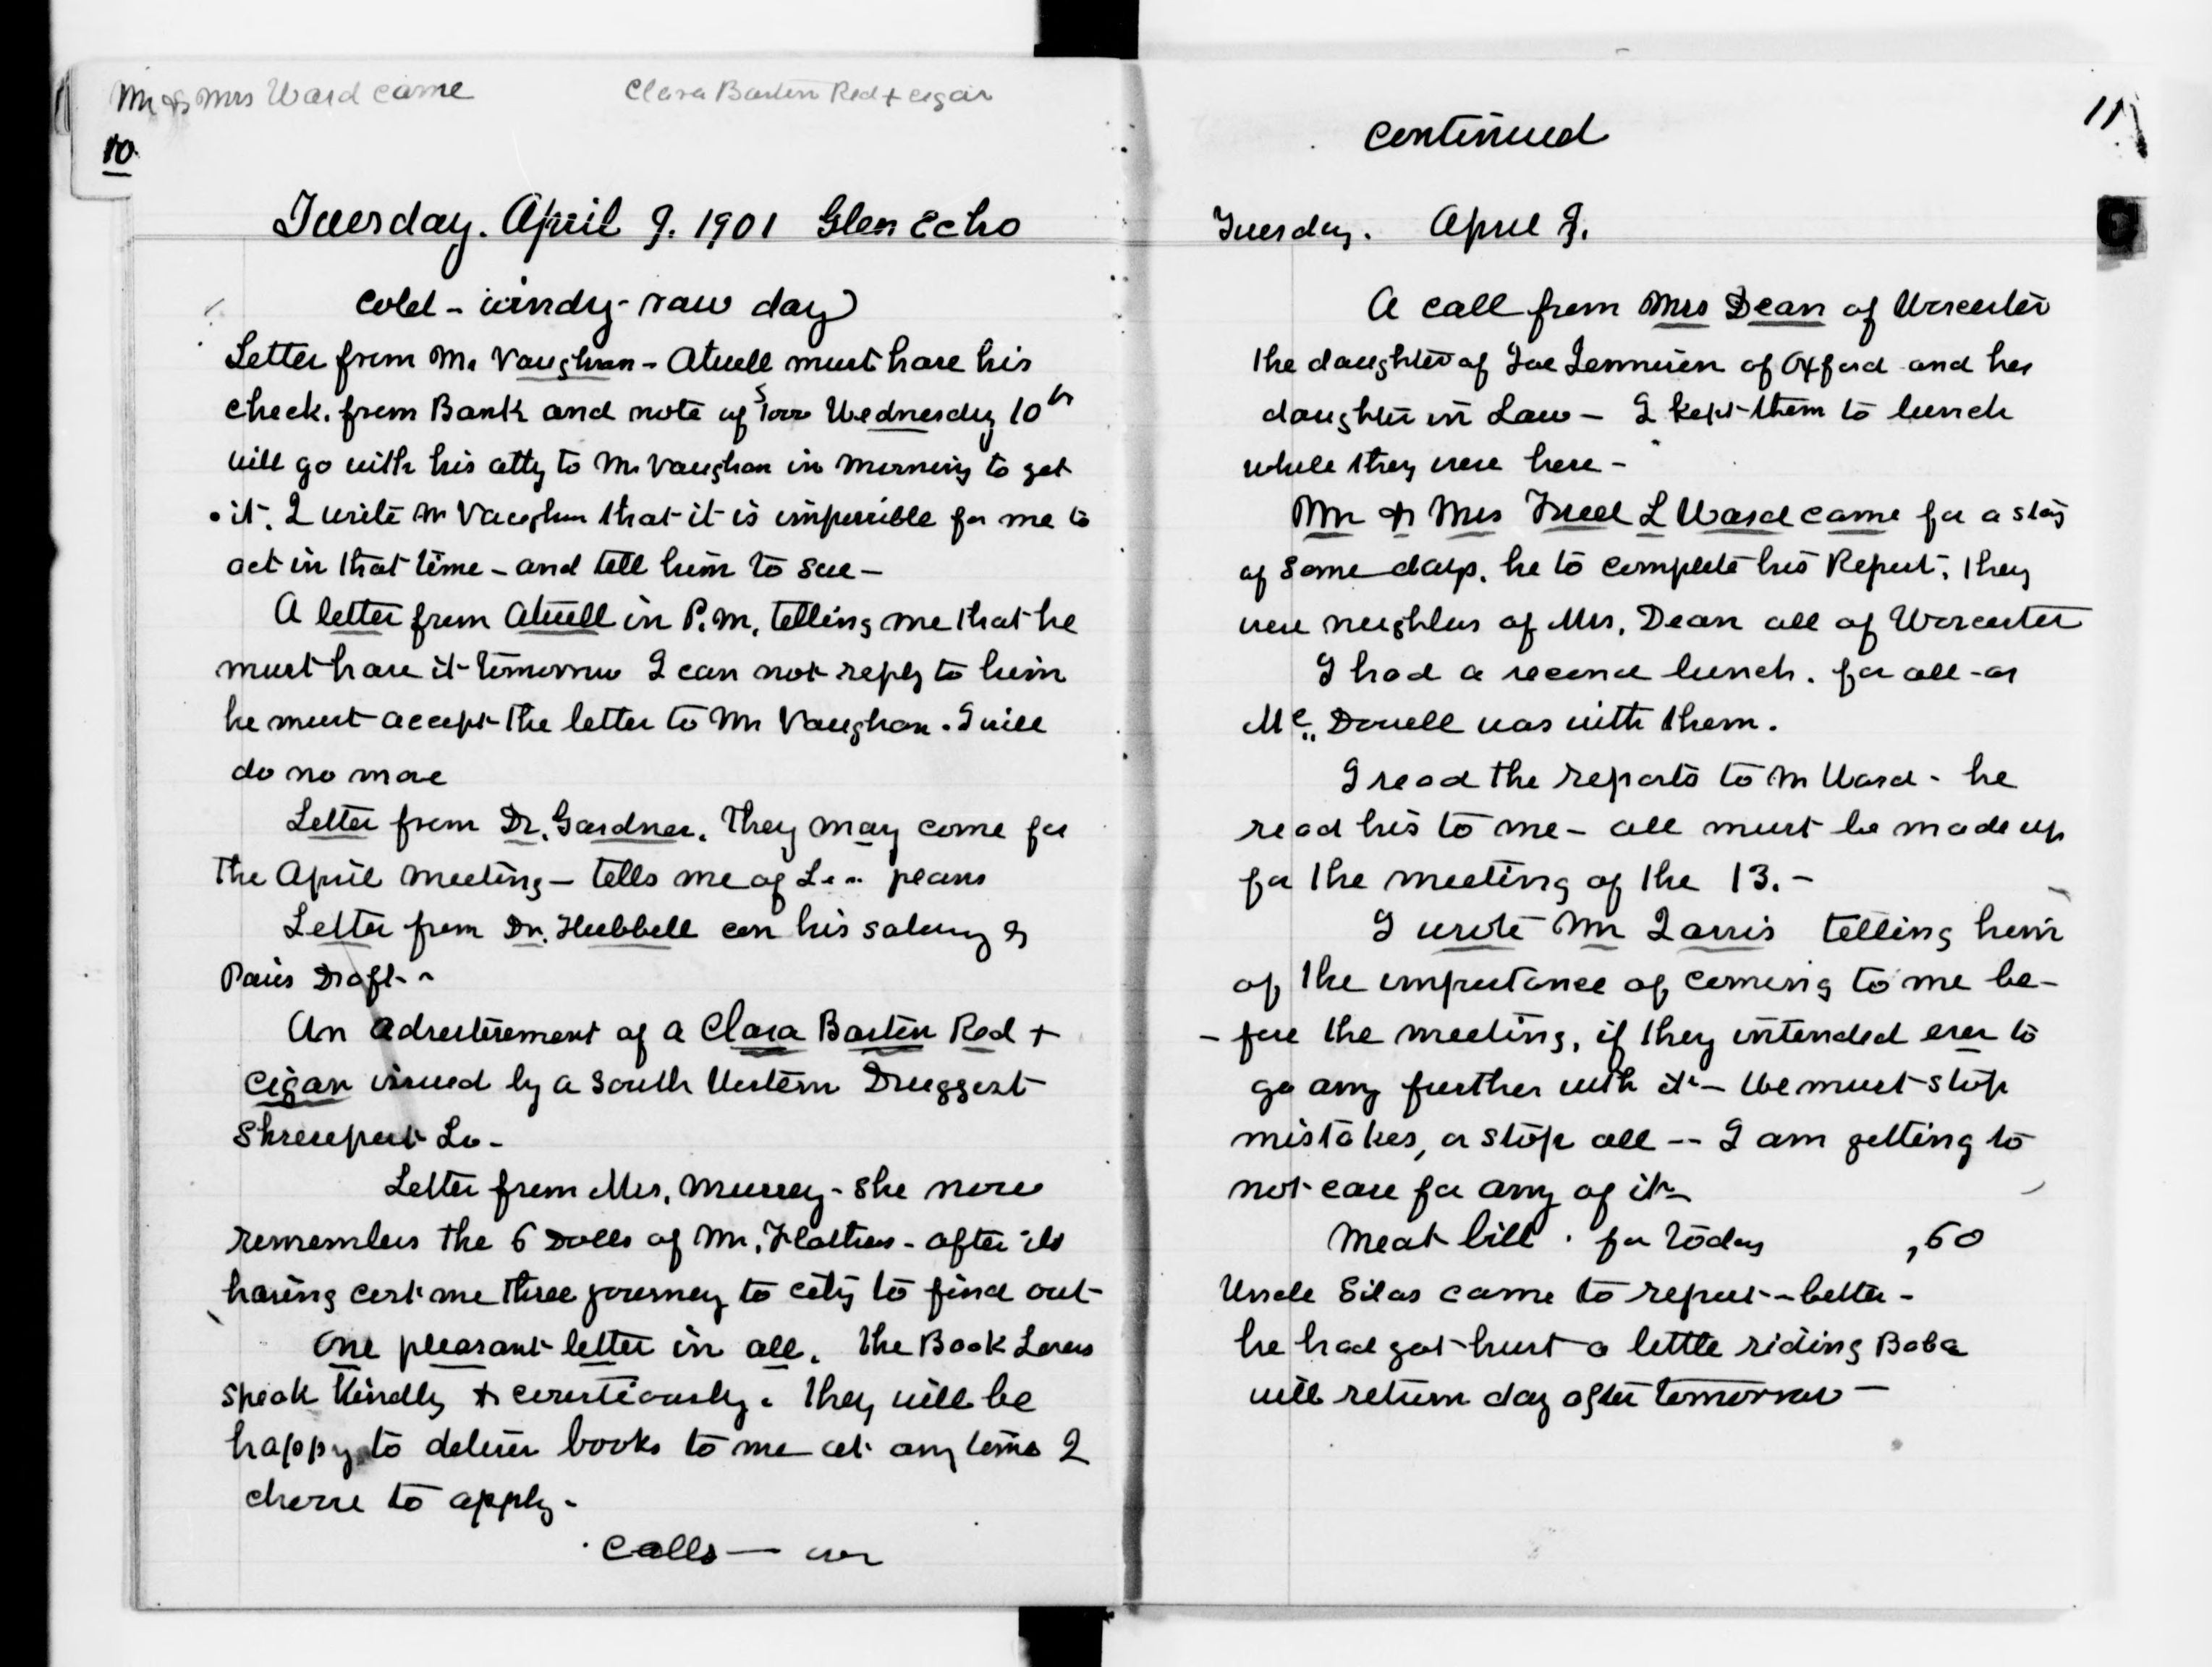 Mr & Mrs Ward came
Clara Barton Red + cigar
10.
Tuesday. April 9. 1901 Glen Echo
Cold - windy - raw day
Letter from Mr Vaughan - Atwell must have his
check. from Bank and note of $1000 Wednesday 10th
will go with his atty to Mr Vaughan in morning to get
it. I write Mr Vaughan that it is impossible for me to
act in that time - and tell him to sue -
A letter from Atwell in P.M. telling me that he
must have it tomorrow I can not reply to him
he must accept the letter to Mr Vaughan. I will
do no more
Letter from Dr. Gardner. They may come for
the April meeting - tells me of peans
Letter from Dr. Hubbell con his salary &
Paris Draft -
An Advertisement of a Clara Barton Red +
Cigar issued by a South Western Druggest
Shreveport La -
Letter from Mrs. Murrey - She now
remembers the 6 Dolls of Mr. Flathers - after its
having cost me three journey to city to find out -
One pleasant letter in all. The Book Lovers
speak kindly & courtiously. They will be
happy to deliver books to me at any time I
choose to apply -
Calls — over
11
Continued
Tuesday. April 9.
A call from Mrs Dean of Worcester
the daughter of Joe of Oxford and her
daughter in Law - I kept them to lunch
while they were here -
Mr & Mrs Fred L Ward came for a stay
of some days. he to complete his Report. They
were neighbors of Mrs. Dean all of Worcester
I had a second lunch. for all - as
Mc Dowell was with them.
I read the reports to Mr Ward - he
read his to me - all must be made up
for the meeting of the 13. -
I wrote Mr Larris telling him
of the importance of coming to me be-
- fore the meeting, if they intended ever to
go any further with it - We must stop
mistakes, or stop all -- I am getting to
not care for any of it -
Meat bill . for today ,60
Uncle Silas came to report - better -
he had got hurt a little riding Baba
will return day after tomorrow —